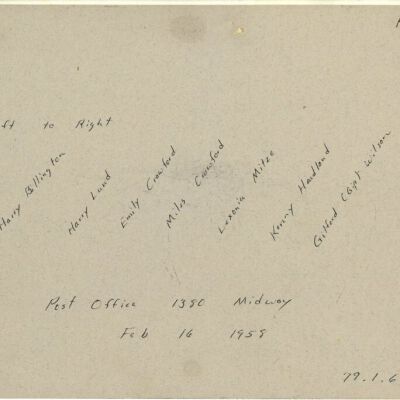 ft to Right
Harry Billington
Harry Lund
Emily Crawford
Miles Crawford
Lexonia Mitze
Kenny Haviland
Gifford (Gip) Wilson
Post Office 1380 Midway
Feb 16 1958
79.1.6